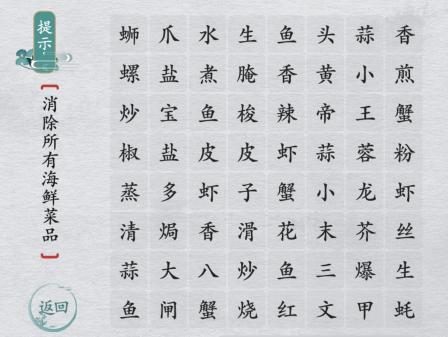 提示
消除所有海鲜菜品
返回
蛳爪水生鱼头蒜香
螺盐煮腌香黄小煎
炒宝鱼梭辣帝王蟹
椒盐皮皮虾蒜蓉粉
蒸多虾子蟹小龙虾
清焗香滑花末芥丝
蒜大八炒鱼三爆生
鱼闸蟹烧红文甲蚝